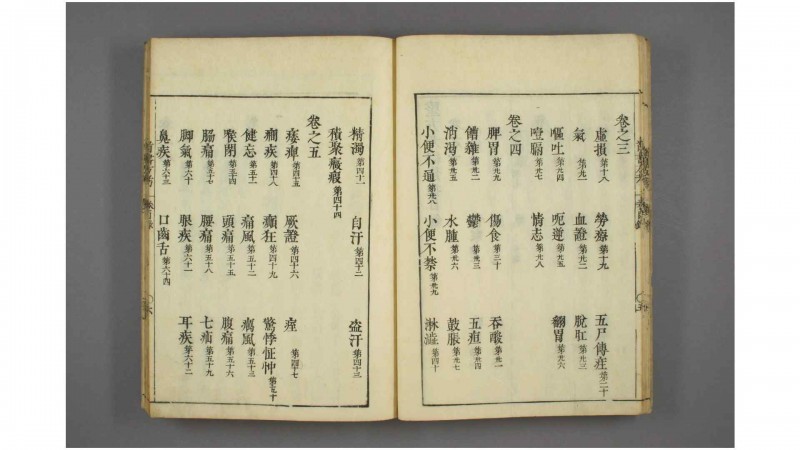 卷之三
虛損第十八 勞瘵第十九 五尸傳疰第二十
氣第廿一 血證第廿二 脫肛第廿三
嘔吐第廿四 呃逆第廿五 翻胃第廿六
噎膈第廿七 情志第廿八
卷之四
脾胃第廿九 傷食第三十 吞酸第卅一
嘈雜第卅二 鬱第卅三 五疸第卅四
消渴第卅五 水腫第卅六 鼓脹第卅七
小便不通第卅八 小便不禁第卅九 淋澁第四十
精濁第四十一 自汗第四十二 盜汗第四十三
積聚癥瘕第四十四
卷之五
痿痺第四十五 厥證第四十六 痓第四十七
癇疾第四八 癲狂第四十九 驚悸怔忡第五十
健忘第五十一 痛風第五十二 癘風第五十三
喉閉第五十四 頭痛第五十五 腹痛第五十六
腸痛第五十七 腰痛第五十八 七疝第五十九
脚氣第六十 眼疾第六十一 耳疾第六十二
鼻疾第六十三 口齒舌第六十四